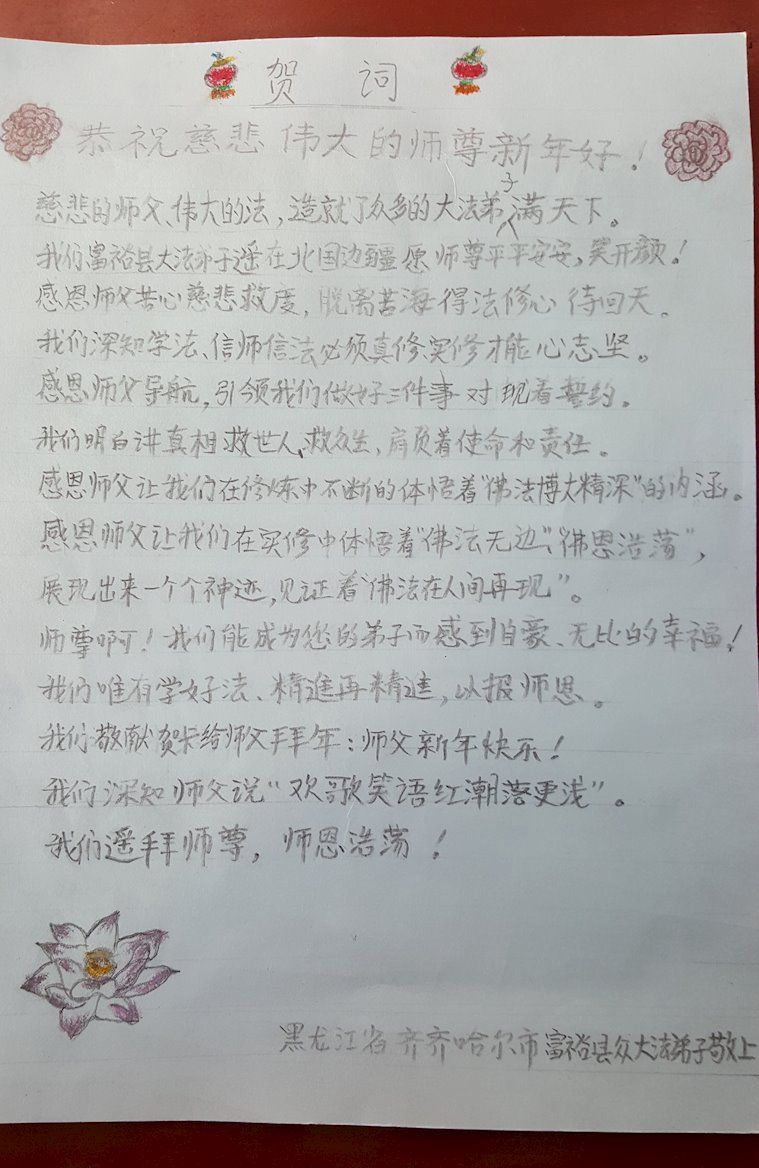 贺 词
恭祝慈悲伟大的师尊新年好！
慈悲的师父、伟大的法，造就了众多的大法弟子满天下。
我们富裕县大法弟子遥在北国边疆愿师尊平平安安，笑开颜！
感恩师父苦心慈悲救度，脱离苦海得法修心待回天。
我们深知学法、信师信法必须真修、实修才能心志坚。
感恩师父导航，引领我们做好三件事对现着誓约。
我们明白讲真相救世人、救众生，肩负着使命和责任。
感恩师父让我们在修炼中不断的体悟着“佛法博大精深”的内涵。
感恩师父让我们在实修中体悟着“佛法无边”、“佛恩浩荡”，
展现出来一个个神迹，见证着“佛法在人间再现”。
师尊啊！我们能成为您的弟子而感到自豪、无比的幸福！
我们唯有学好法、精進再精進，以报师恩。
我们敬献贺卡给师父拜年：师父新年快乐！
我们深知师父说“欢歌笑语红潮落更浅”。
我们遥拜师尊，师恩浩荡！
黑龙江省齐齐哈尔市富裕县众大法弟子敬上